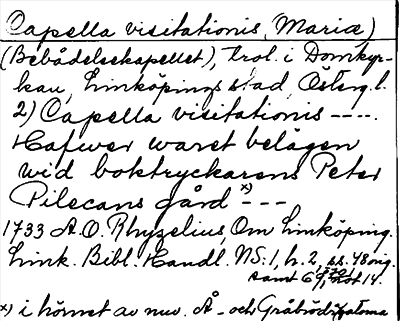 Capella visitationis, Mariæ)
(Bebådelsekapellet), trol. i Domkyr-
kan, Linköpings stad, Österg. l.
2) Capella visitationis ----.
Hafwer waret belägen
wid boktryckarens Peter
Pilecans gård x) ---
1733 A.O. Rhyzelius, Om Linköping.
Link. Bibl. Handl. NS: 1, h. 2, ss. 48 orig.
samt 69, not 14.
x) i hörnet av nuv. Å- och Gråbrödragatorna